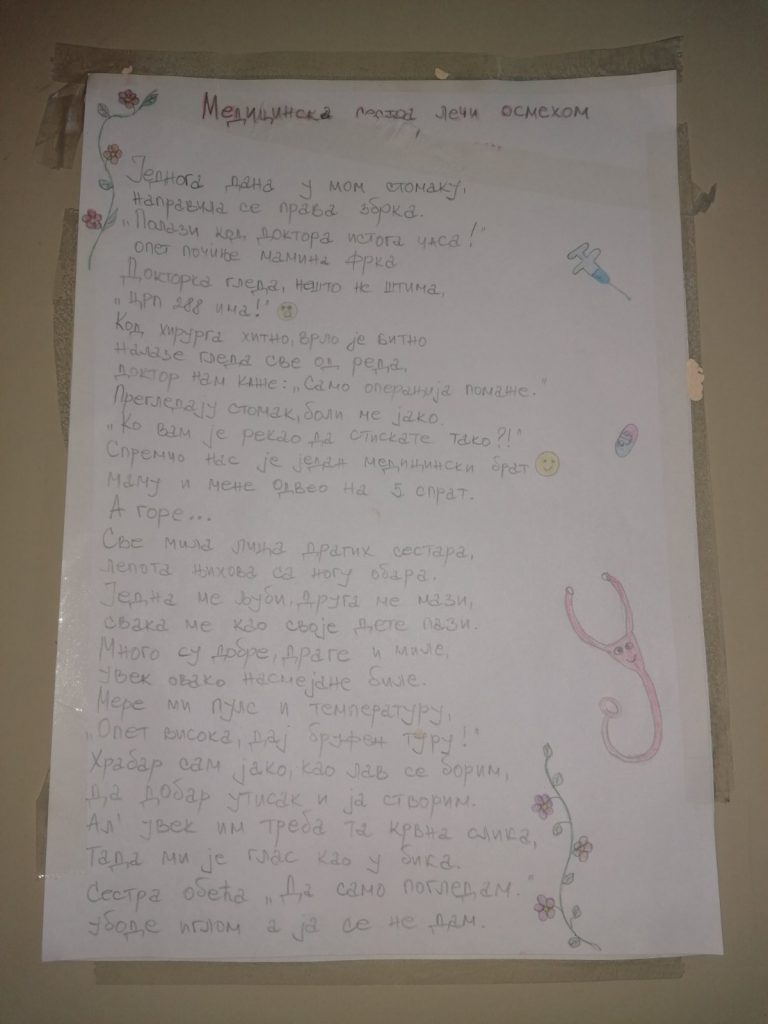 Медицинска сестра лечи осмехом
Једнога дана у мом стомаку,
направила се права збрка.
„Полази код доктора истога часа!"
опет почиње мамина фрка
Докторка гледа, нешто не штима,
„ЦРП 288 има!"
Код хирурга хитно, врло је битно
налазе гледа све од реда,
доктор нам каже: „Само операција помаже."
Прегледају стомак, боли ме јако.
„Ко вам је рекао да стискате тако?!"
Спремно нас је један медицински брат
маму и мене одвео на 5. спрат.
А горе...
Све мила лица драгих сестара,
лепота њихова са ногу обара.
Једна ме љуби, друга ме мази,
свака ме као своје дете пази.
Много су добре, драге и миле,
увек овако насмејане биле.
Мере ми пулс и температуру,
„Опет висока, дај бруфен туру!"
Храбар сам јако, као лав се борим,
да добар утисак и ја створим.
Ал' увек им треба та крвна слика,
тада ми је глас као у бика.
Сестра обећа „Да само погледам."
убоде иглом а ја се не дам.